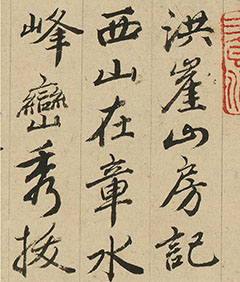 洪崖山房記
西山在章水
峰巒秀拔